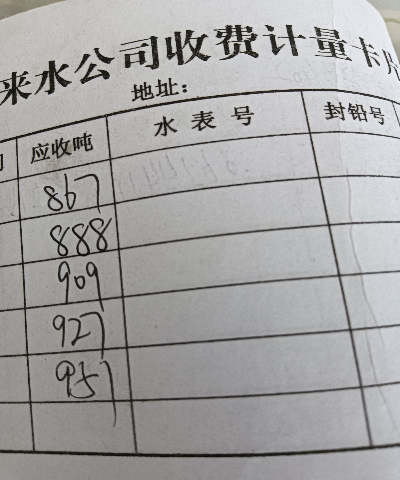 来水公司收费计量卡片
地址：
应收吨 水表号 封铅号
867
888
909
927
951